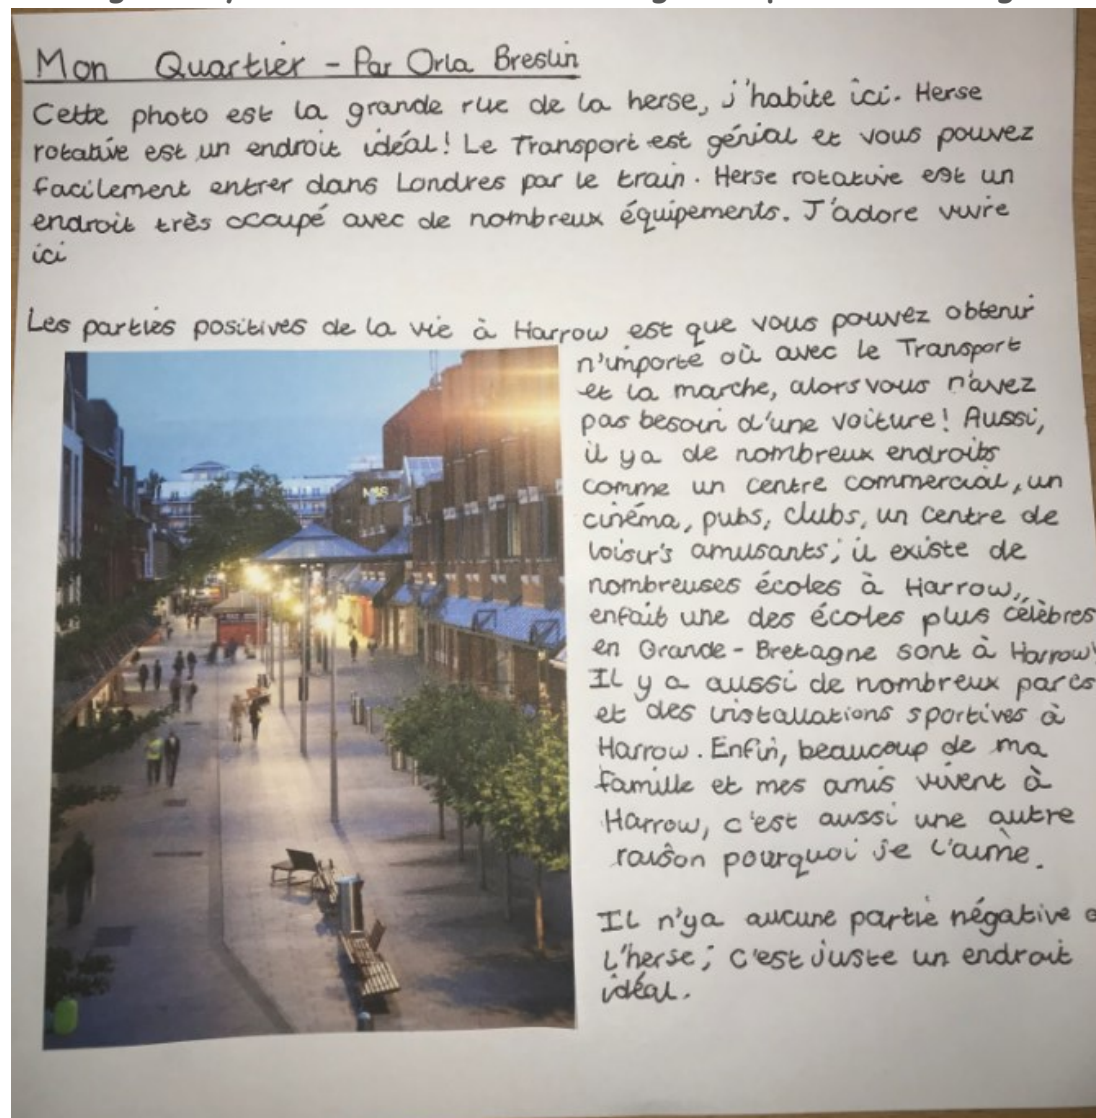 Mon Quartier - Par Orla Breslin
Cette photo est la grande rue de la herse, j'habite ici. Herse
rotative est un endroit idéal! Le Transport est génial et vous pouvez
facilement entrer dans Londres par le train. Herse rotative est un
endroit très occupé avec de nombreux équipements. J'adore vivre
ici
Les parties positives de la vie à Harrow est que vous pouvez obtenir
n'importe où avec le Transport
et la marche, alors vous n'avez
pas besoin d'une voiture! Aussi,
il ya de nombreux endroits
comme un centre commercial, un
cinéma, pubs, clubs, un centre de
loisirs amusants; il existe de
nombreuses écoles à Harrow,
enfait une des écoles plus célèbres
en Grande-Bretagne sont à Harrow!
Il y a aussi de nombreux parcs
et des installations sportives à
Harrow. Enfin, beaucoup de ma
famille et mes amis vivent à
Harrow, c'est aussi une autre
raison pourquoi je l'aime.
Il n'ya aucune partie négative
L'herse; c'est juste un endroit
idéal.
M&S